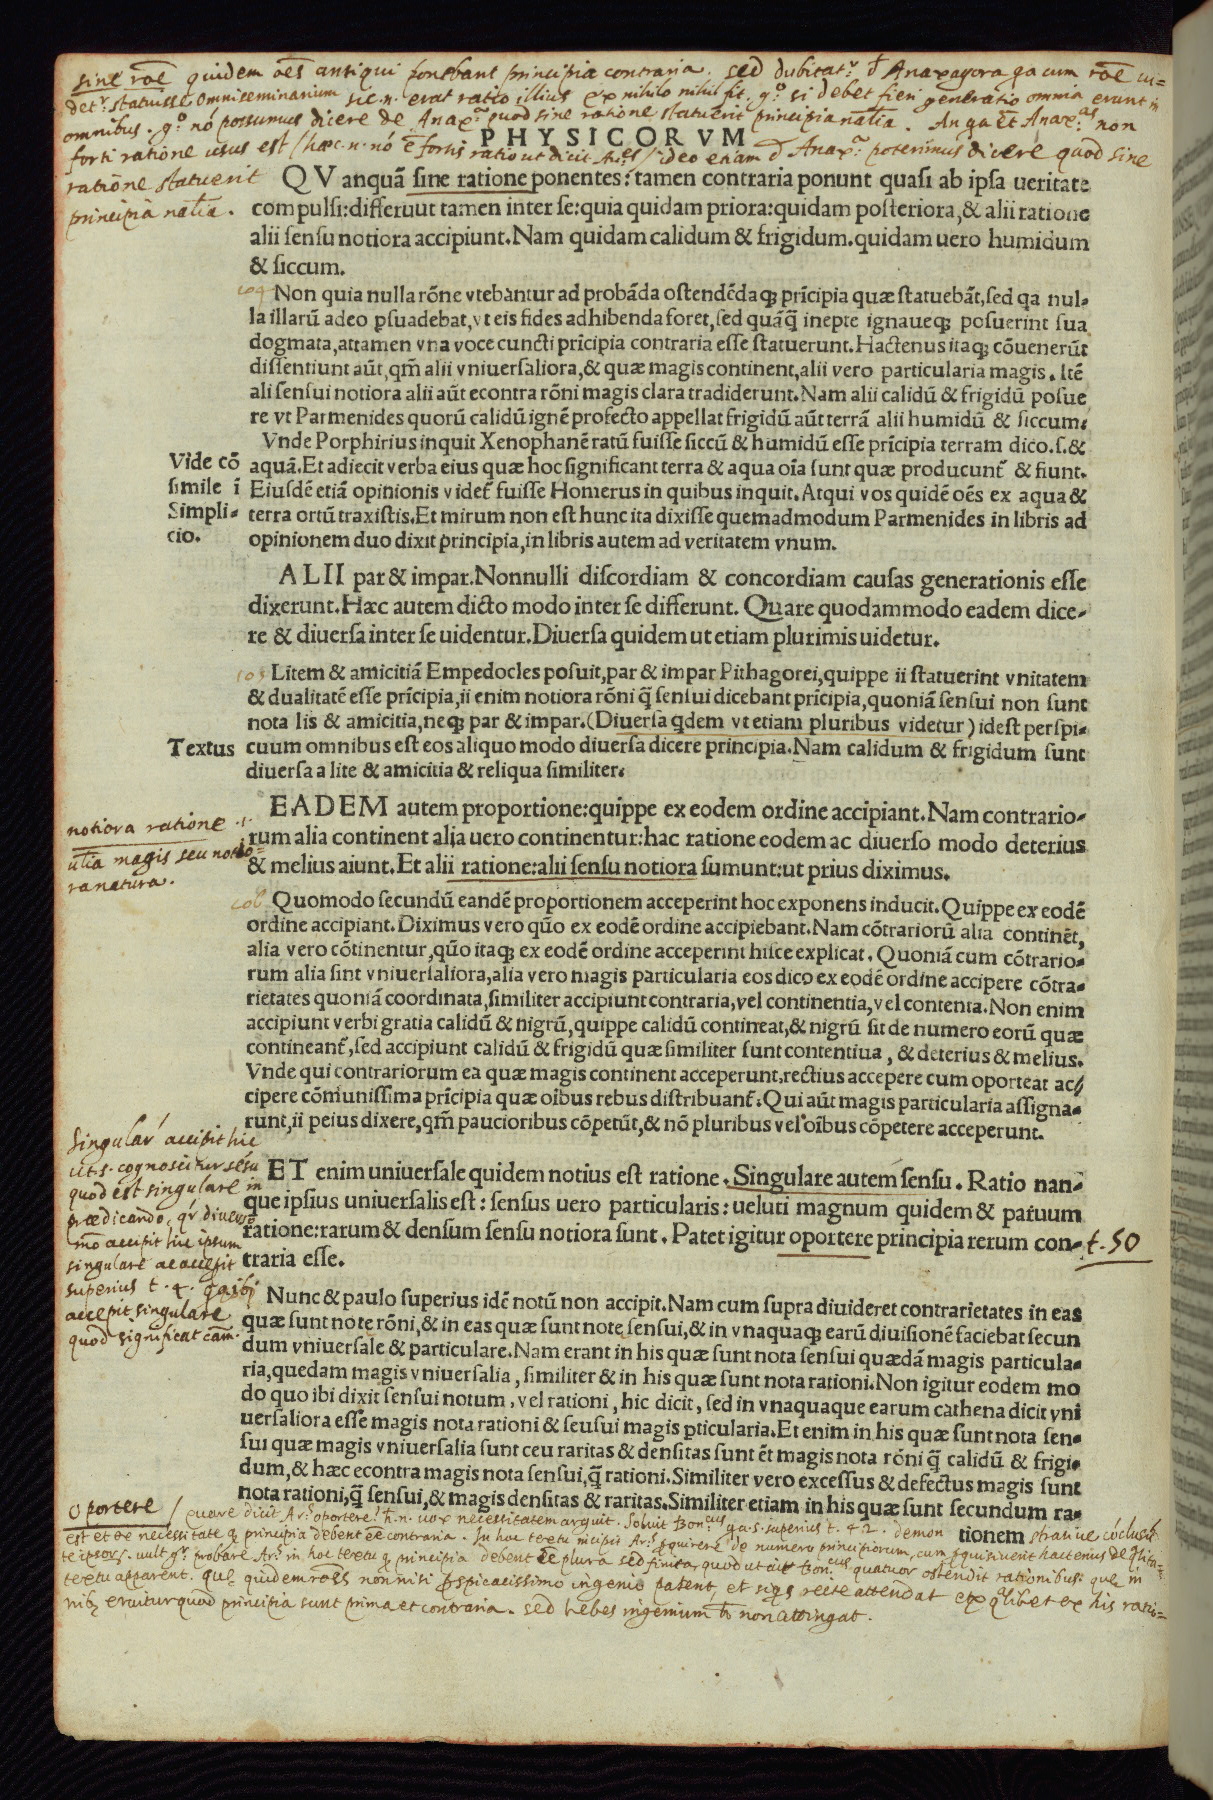 sine rōe quidem oēs antiqui ponebant principia contraria. sed dubitatr d Anaxagora qa cum rōe ui-
detr statuisse omniseminarium sic.n. erat ratio illius ex nihilo nihil fit. go si debet fieri generatio omnia erunt in
omnibus. go nō possumus dicere de Anaxra quod sine ratione statuerit principia nālia. An qa ēt Anaxras non
PHYSICORVM
forti ratione usus est / haec.n. nō ē fortis ratio ut dicit / ideo etiam d Anaxra poterimus dicere quod sine
ratione statuerit
principia nālia.
QVanquā sine ratione ponentes: tamen contraria ponunt quasi ab ipsa ueritate
compulsi:differuut tamen inter se:quia quidam priora:quidam posteriora,& alii ratione
alii sensu notiora accipiunt.Nam quidam calidum & frigidum.quidam uero humidum
& siccum.
Non quia nulla rōne vtebantur ad probāda ostendēdaq; prīcipia quæ statuebāt,sed qa nul-
la illarū adeo psuadebat,vt eis fides adhibenda foret,sed quāq̄ inepte ignaueq; posuerint sua
dogmata,attamen vna voce cuncti pricipia contraria esse statuerunt.Hactenus itaq; cōuenerūt
dissentiunt aūt,qm̄ alii vniuersaliora,& quæ magis continent,alii vero particularia magis. Itē
ali sensui notiora alii aūt econtra rōni magis clara tradiderunt.Nam alii calidū & frigidū posue
re vt Parmenides quorū calidū ignē profecto appellat frigidū aūt terrā alii humidū & siccum.
Vnde Porphirius inquit Xenophanē ratū fuisse siccū & humidū esse prīcipia terram dico.s.&
Vide cō
simile ī
Simpli-
cio.
aquā.Et adiecit verba eius quæ hoc significant terra & aqua oīa sunt quæ producunt̄ & fiunt.
Eiusdē etiā opinionis videt̄ fuisse Homerus in quibus inquit.Atqui vos quidē oēs ex aqua &
terra ortū traxistis.Et mirum non est hunc ita dixisse quemadmodum Parmenides in libris ad
opinionem duo dixit principia,in libris autem ad veritatem vnum.
ALII par & impar.Nonnulli discordiam & concordiam causas generationis esse
dixerunt.Hæc autem dicto modo inter se differunt. Quare quodammodo eadem dice-
re & diuersa inter se uidentur.Diuersa quidem ut etiam plurimis uidetur.
105 Litem & amicitiā Empedocles posuit,par & impar Pithagorei,quippe ii statuerint vnitatem
& dualitatē esse prīcipia,ii enim notiora rōni q̄ sensui dicebant prīcipia,quoniā sensui non sunt
nota lis & amicitia,neq; par & impar.(Diuersa qdem vt etiam pluribus videtur) idest perspi-
Textus
cuum omnibus est eos aliquo modo diuersa dicere principia.Nam calidum & frigidum sunt
diuersa a lite & amicitia & reliqua similiter.
notiora ratione .i.
utia magis seu notio-
ra natura.
EADEM autem proportione:quippe ex eodem ordine accipiant.Nam contrario-
rum alia continent alia uero continentur:hac ratione eodem ac diuerso modo deterius
& melius aiunt.Et alii ratione:alii sensu notiora sumunt:ut prius diximus.
Quomodo secundū eandē proportionem acceperint hoc exponens inducit.Quippe ex eodē
ordine accipiant.Diximus vero qūo ex eodē ordine accipiebant.Nam cōtrariorū alia continēt,
alia vero cōtinentur,qūo itaq; ex eodē ordine acceperint hisce explicat.Quoniā cum cōtrario-
rum alia sint vniuersaliora,alia vero magis particularia eos dico ex eodē ordine accipere cōtra-
rietates quoniā coordinata,similiter accipiunt contraria,vel continentia,vel contenta.Non enim
accipiunt verbi gratia calidū & nigrū,quippe calidū contineat,& nigrū sit de numero eorū quæ
contineant̄,sed accipiunt calidū & frigidū quæ similiter sunt contentiua, & deterius & melius.
Vnde qui contrariorum ea quæ magis continent acceperunt,rectius accepere cum oporteat ac
cipere cōmunissima prīcipia quæ oībus rebus distribuant̄.Qui aūt magis particularia assigna-
runt,ii peius dixere,qm̄ paucioribus cōpetūt,& nō pluribus vel oībus cōpetere acceperunt.
Singular accipit hic
ut.s. cognoscitur sēsu
quod est singulare in
prædicando, qr diuerso
mō accipit hic ipsum
singulare ac accepit
superius t. 4. qa ibi
accepit singulare
quod significat cām.
ET enim uniuersale quidem notius est ratione.Singulare autem sensu. Ratio nan-
que ipsius uniuersalis est: sensus uero particularis: ueluti magnum quidem & paruum
ratione:rarum & densum sensu notiora sunt. Patet igitur oportere principia rerum con- t. 50
traria esse.
Nunc & paulo superius idē notū non accipit.Nam cum supra diuideret contrarietates in eas
quæ sunt note rōni,& in eas quæ sunt note sensui,& in vnaquaq; earū diuisionē faciebat secun
dum vniuersale & particulare.Nam erant in his quæ sunt nota sensui quædā magis particula-
ria,quedam magis vniuersalia, similiter & in his quæ sunt nota rationi.Non igitur eodem mo
do quo ibi dixit sensui notum, vel rationi, hic dicit, sed in vnaquaque earum cathena dicit vni
uersaliora esse magis nota rationi & seusui magis pticularia.Et enim in his quæ sunt nota sen-
sui quæ magis vniuersalia sunt ceu raritas & densitas sunt ēt magis nota rōni q̄ calidū & frigi-
dum,& hæc econtra magis nota sensui,q̄ rationi.Similiter vero excessus & defectus magis sunt
nota rationi,q̄ sensui,& magis densitas & raritas.Similiter etiam in his quæ sunt secundum ra-
tionem
oportere / quare dicit Ars oportere? hn. uox necessitatem arguit. Soluit Boncus qa.s. superius t. 42. demonstratiue cōclusū
est et ex necessitate q principia debent ēe contraria. In hoc textu incipit Ars pquirere de numero principiorum, cum pquisiuerit hactenus de qlita-
te ipsorum. uult go probare Ars in hoc textu q principia debent ēe plura sed finita, quod ut ait Boncus quatuor ostendit rationibus: que in
textu apparent. que quidem rōes non nisi pspicacissimo ingenio patent, et siqs recte attendat ex qlibet ex his ratio-
nibus eruitur quod principia sunt prima et contraria. sed hebes ingenium hō non attingat.